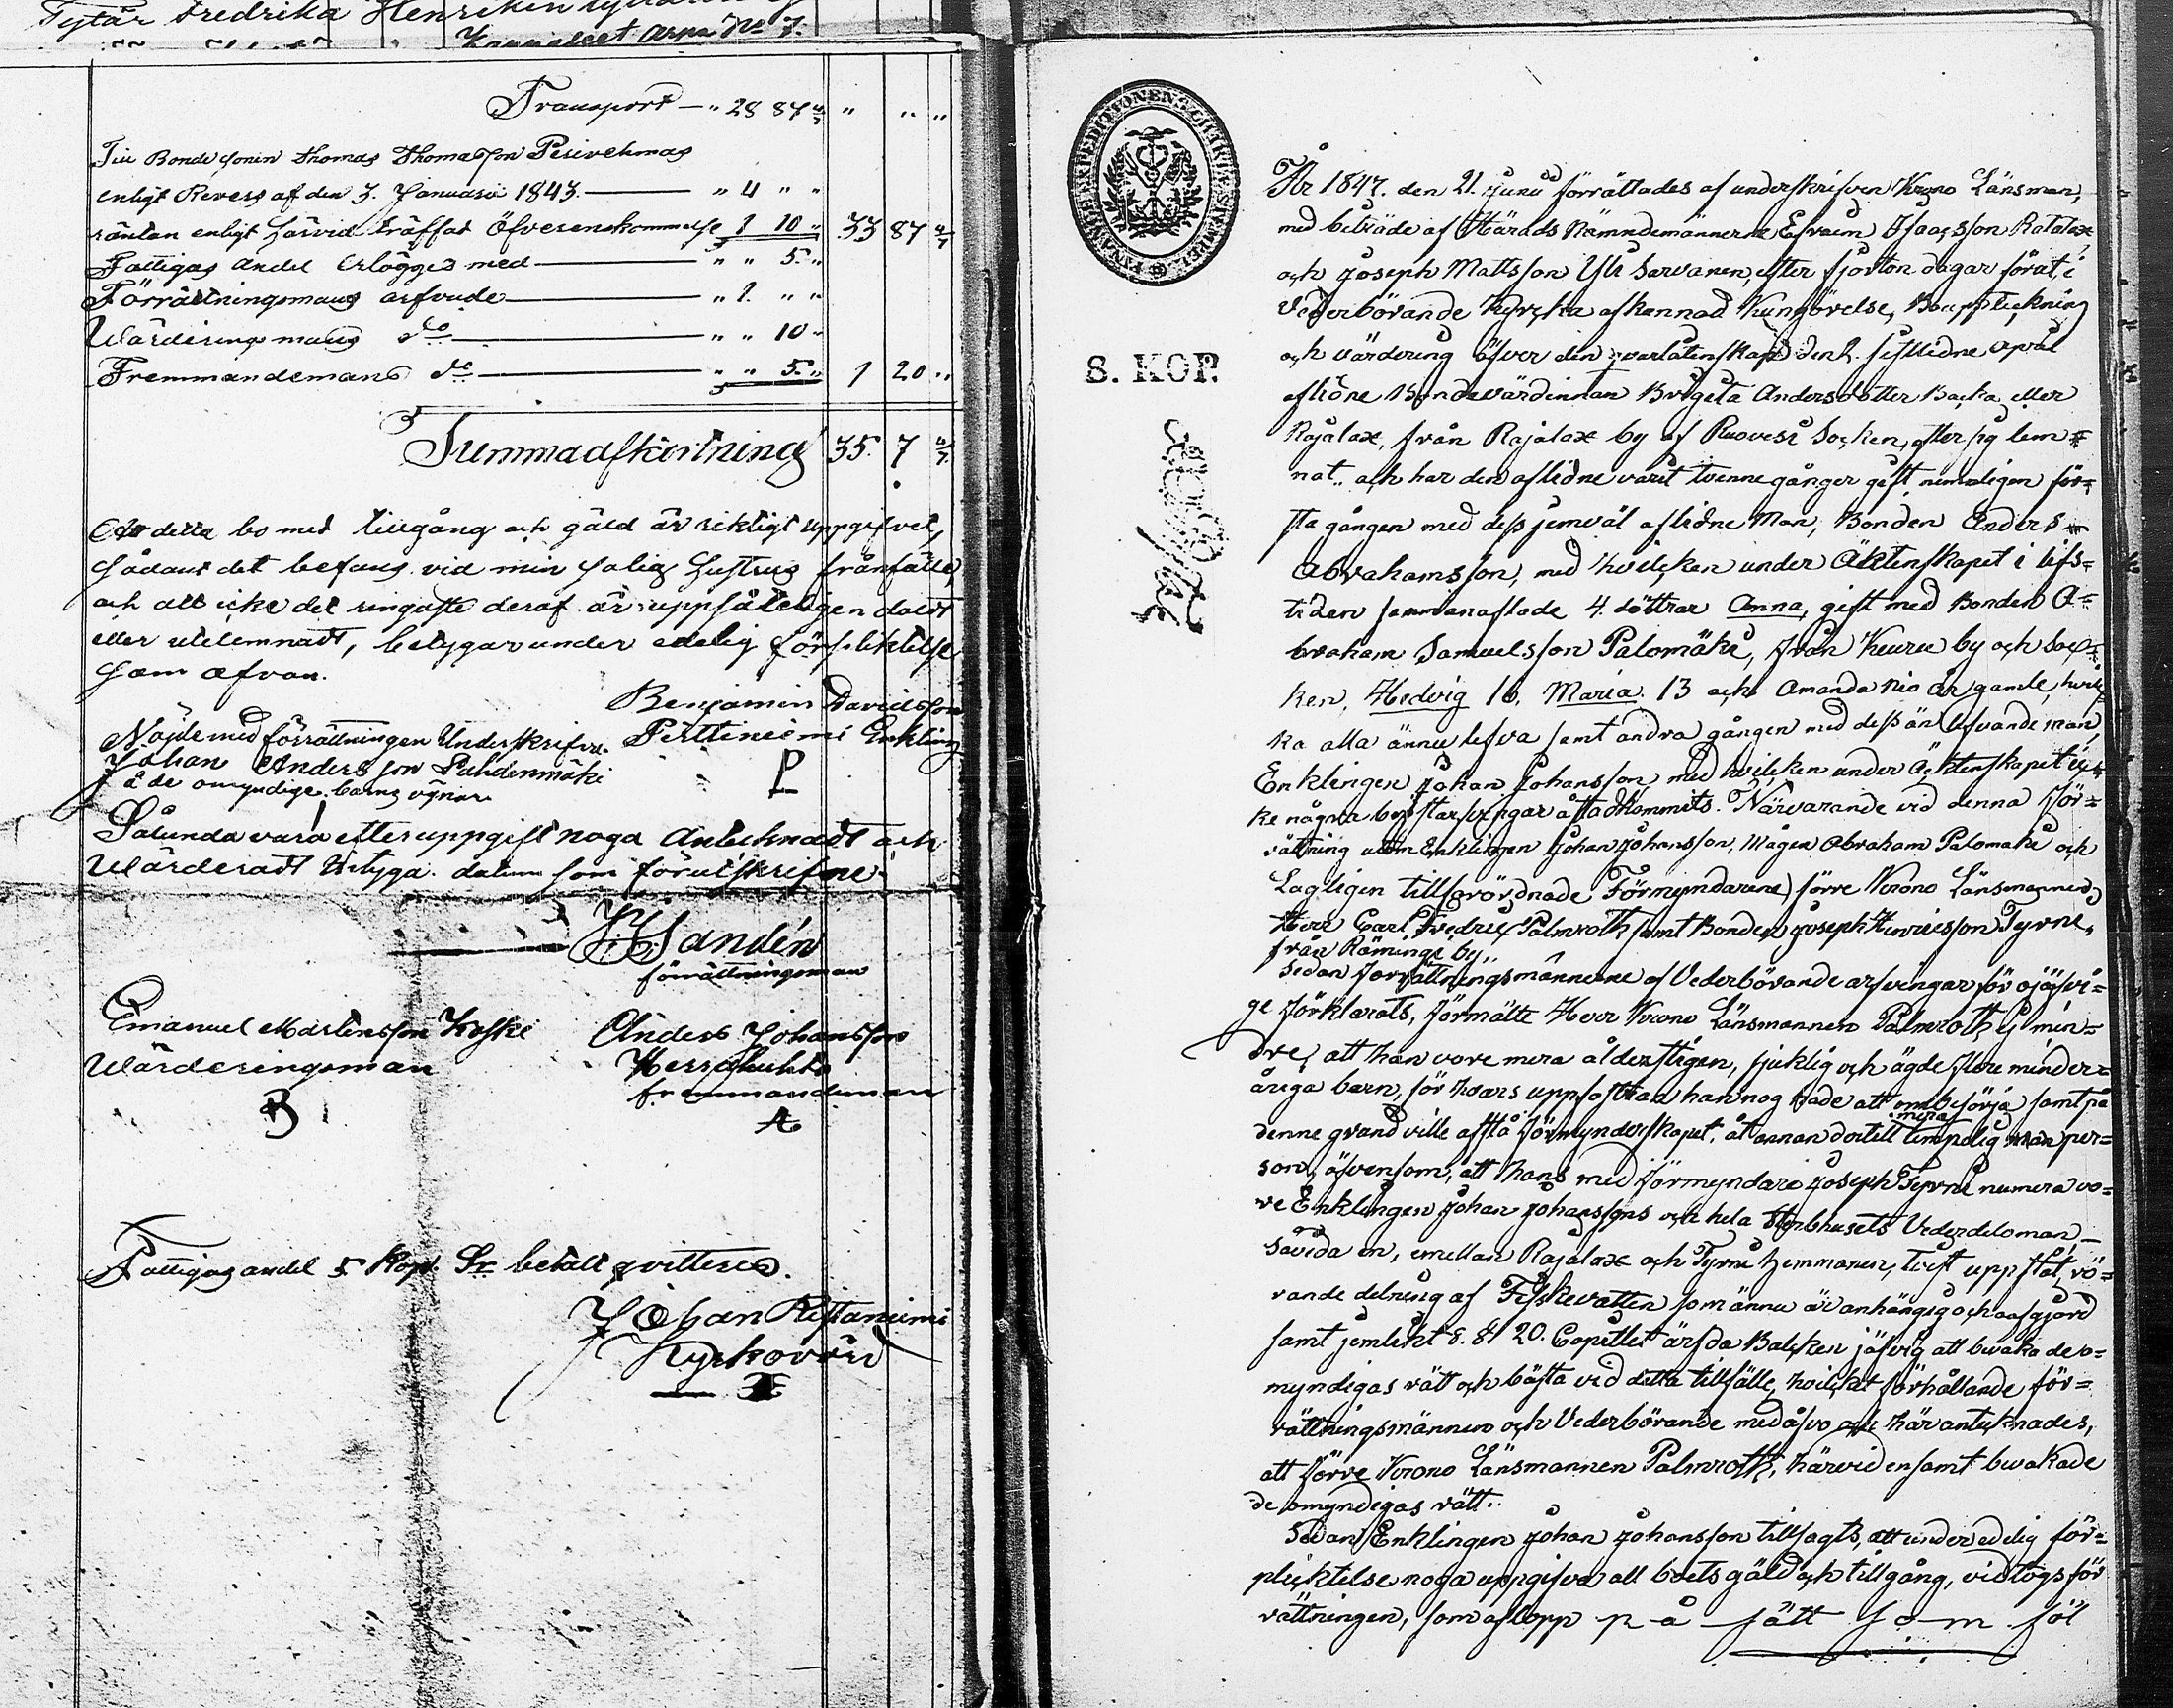 Tytär Fredrika Henrikin
Transport — " 28 87 4/7 " " "
Till Bonde sonen Thomas Thomasson Pesivehmas
enligt Revers af den 3. Januarii 1843. — " 4 " "
räntan enligt härvid träffad Öfverenskommelse 1 10 " 33 87 4/7
Fattigas andel erlägges med — " " 5 "
Förrättningsmans arfvode — " 1. " "
Wärderingsmans do — " " 10 "
Fremmandemans do — " " 5 " 1 20 "
Summa afkortning 35. 7 4/7
Att detta bo med tillgång och gäld är riktigt uppgifvet,
sådant det befans vid min salig hustrus frånfälle,
och att icke det ringaste deraf är uppsåteligen doldt
eller utelemnadt, betygar under edelig förpliktelse
som ofvan.
Benjamin Davidsson
Perttuniemi Enkling
P
Nöjde med förrättningen Underskrifva.
Johan Andersson
å de omyndige barns vägnar
Sålunda vara efter uppgift noga Antecknadt och
Wärderadt betyga datum som förutskrifne
Sandén
förrättningsman
Emanuel Mårtensson Koski
Wärderingsman
B
Anders Johansson
fremmandeman
A
Fattigas andel 5 Kop. Sr betalt qvitteras.
Johan Ristaniemi
Kyrkovärd
FINANCE EXPEDITIONENS CHARTÆ STEMPEL
S. KOP.
År 1847. den 21. Junii förrättades af underskrifven Krono Länsman,
med biträde af Härads Nämndemännerne Efraim Isaacsson Ratalax
och Joseph Mattsson Yli Sarvanen, efter fjorton dagar förut i
Vederbörande Kyrcka afkennad Kungörelse, Bouppteckning
och värdering öfver den qvarlåtenskap den 2. sistledne April
aflidne Bondevärdinnan Brigita Andersdotter Backa eller
Rajalax, från Rajalax by af Ruovesi Socken, efter sig lem=
nat.. och har den aflidne varit tvenne gånger gift, nemligen för=
sta gången med dess jemväl aflidne Man, Bonden Anders
Abrahamsson, med hvilcken under Äktenskapet i lifs=
tiden sammanaflade 4. döttrar Anna, gift med Bonden A=
braham Samuelsson Palomäki, från Keuru by och Soc=
ken, Hedvig 16, Maria 13 och Amanda nio år gamle, hvil=
ka alla ännu lefva samt andra gången med dess än lefvande man
Enklingen Johan Johansson, med hvilcken under Äcktenskapet ic=
ke några bröstarfvingar åttadkommits. Närvarande vid denna för=
rättning voro Enklingen Johan Johansson, Mågen Abraham Palomäki och
Lagligen tillförordnade Förmyndarene förre Krono Länsmannen,
Herr Carl Fredric Palmroth samt Bonden Joseph Henricsson Tyrne,
från Räminge by..
Sedan förrättningsmännerne af Vederbörande arfvingar för ojäfvi=
ge förklarats, förmälte Herr Krono Länsmannen Palmroth, ej min=
dre, att han vore mera ålderstigen, sjuklig och ägde flere minder=
åriga barn, för hvars uppfostran han nog hade att ombesörja samt på
denne grund ville afstå förmynderskapet, åt annan dertill mera lämpelig man per=
son, äfvensom, att hans med förmyndare Joseph Tyrne numera vo=
re Enklingen Johan Johanssons och hela sterbhusets Vederdeloman —
såvida en, emellan Rajalax och Tyrne hemmanen, tvist uppstått, rö=
rande delning af Fiskevatten som ännu är anhängig och oafgjord
samt jemlikt 8. §. 20. Capitlet ärfda Balcken jäfvig att bevaka de o=
myndigas rätt och bästa vid detta tillfälle, hvilcket förhållande för=
rättningsmännen och Vederbörande medgåfvo och här antecknades,
att förre Krono Länsmannen Palmroth, härvid ensamt bevakade
de omyndigas rätt..
Sedan Enklingen Johan Johansson tillsagts, att under edelig för=
plicktelse noga uppgifva all boets gäld och tillgång, vidtogs för
rättningen, som aflopp på sätt som föl